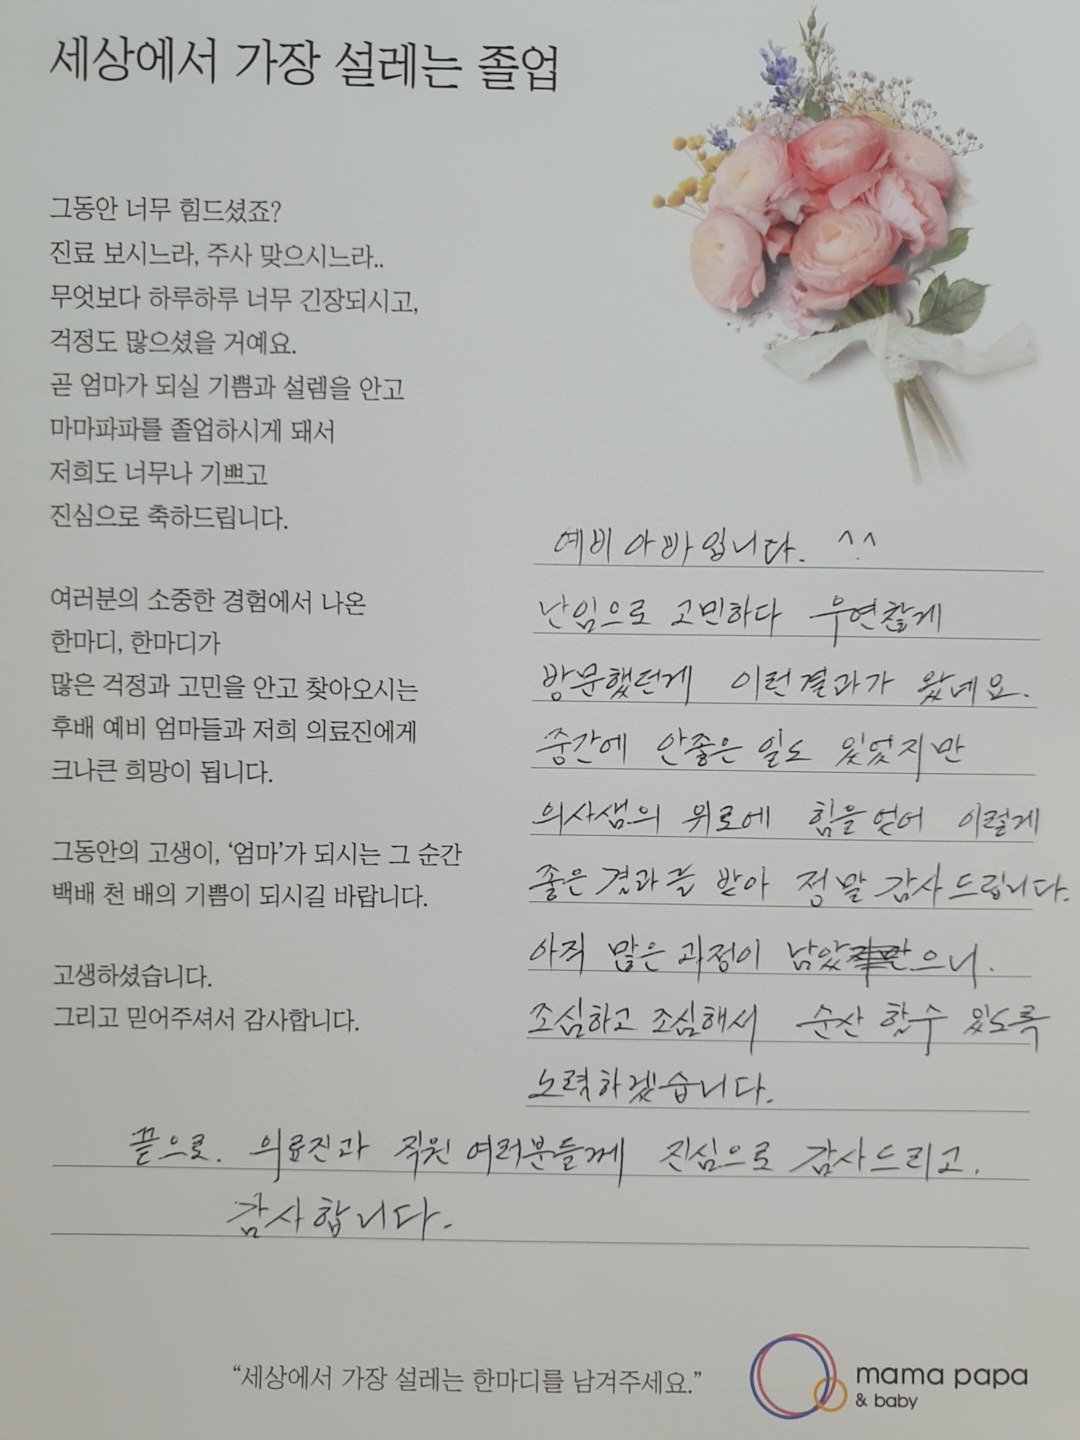 세상에서 가장 설레는 졸업
그동안 너무 힘드셨죠?
진료 보시느라, 주사 맞으시느라..
무엇보다 하루하루 너무 긴장되시고,
걱정도 많으셨을 거예요.
곧 엄마가 되실 기쁨과 설렘을 안고
마마파파를 졸업하시게 돼서
저희도 너무나 기쁘고
진심으로 축하드립니다.
여러분의 소중한 경험에서 나온
한마디, 한마디가
많은 걱정과 고민을 안고 찾아오시는
후배 예비 엄마들과 저희 의료진에게
크나큰 희망이 됩니다.
그동안의 고생이, ‘엄마’가 되시는 그 순간
백배 천 배의 기쁨이 되시길 바랍니다.
고생하셨습니다.
그리고 믿어주셔서 감사합니다.
예비 아빠입니다. ^^
난임으로 고민하다 우연찮게
방문했던게 이런결과가 왔네요.
중간에 안좋은 일도 있었지만
의사샘의 위로에 힘을 얻어 이렇게
좋은 결과를 받아 정말 감사드립니다.
아직 많은 과정이 남았으니.
조심하고 조심해서 순산 할수 있도록
노력하겠습니다.
끝으로. 의료진과 직원 여러분들께 진심으로 감사드리고.
감사합니다.
“세상에서 가장 설레는 한마디를 남겨주세요.”
mama papa
& baby